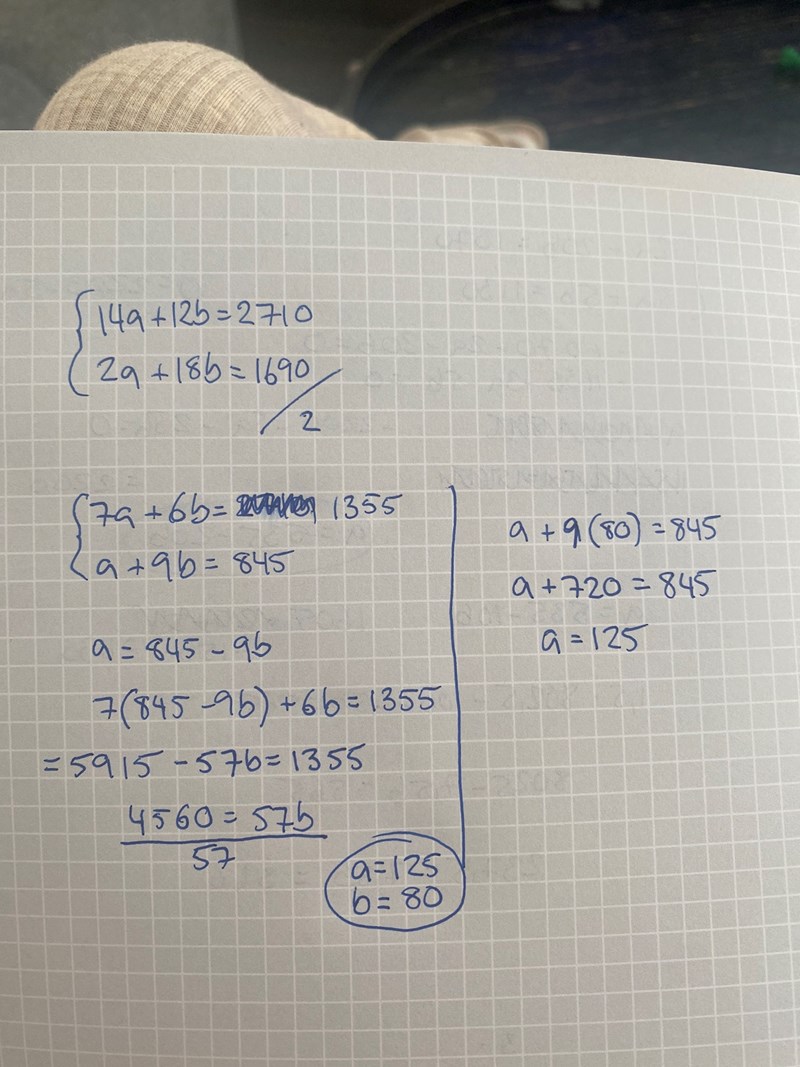 14a+12b=2710
2a+18b=1690
2
7a+6b= 1355
a+9b=845
a=845-9b
7(845-9b)+6b=1355
=5915-57b=1355
4560=57b
57
a+9(80)=845
a+720=845
a=125
a=125
b=80